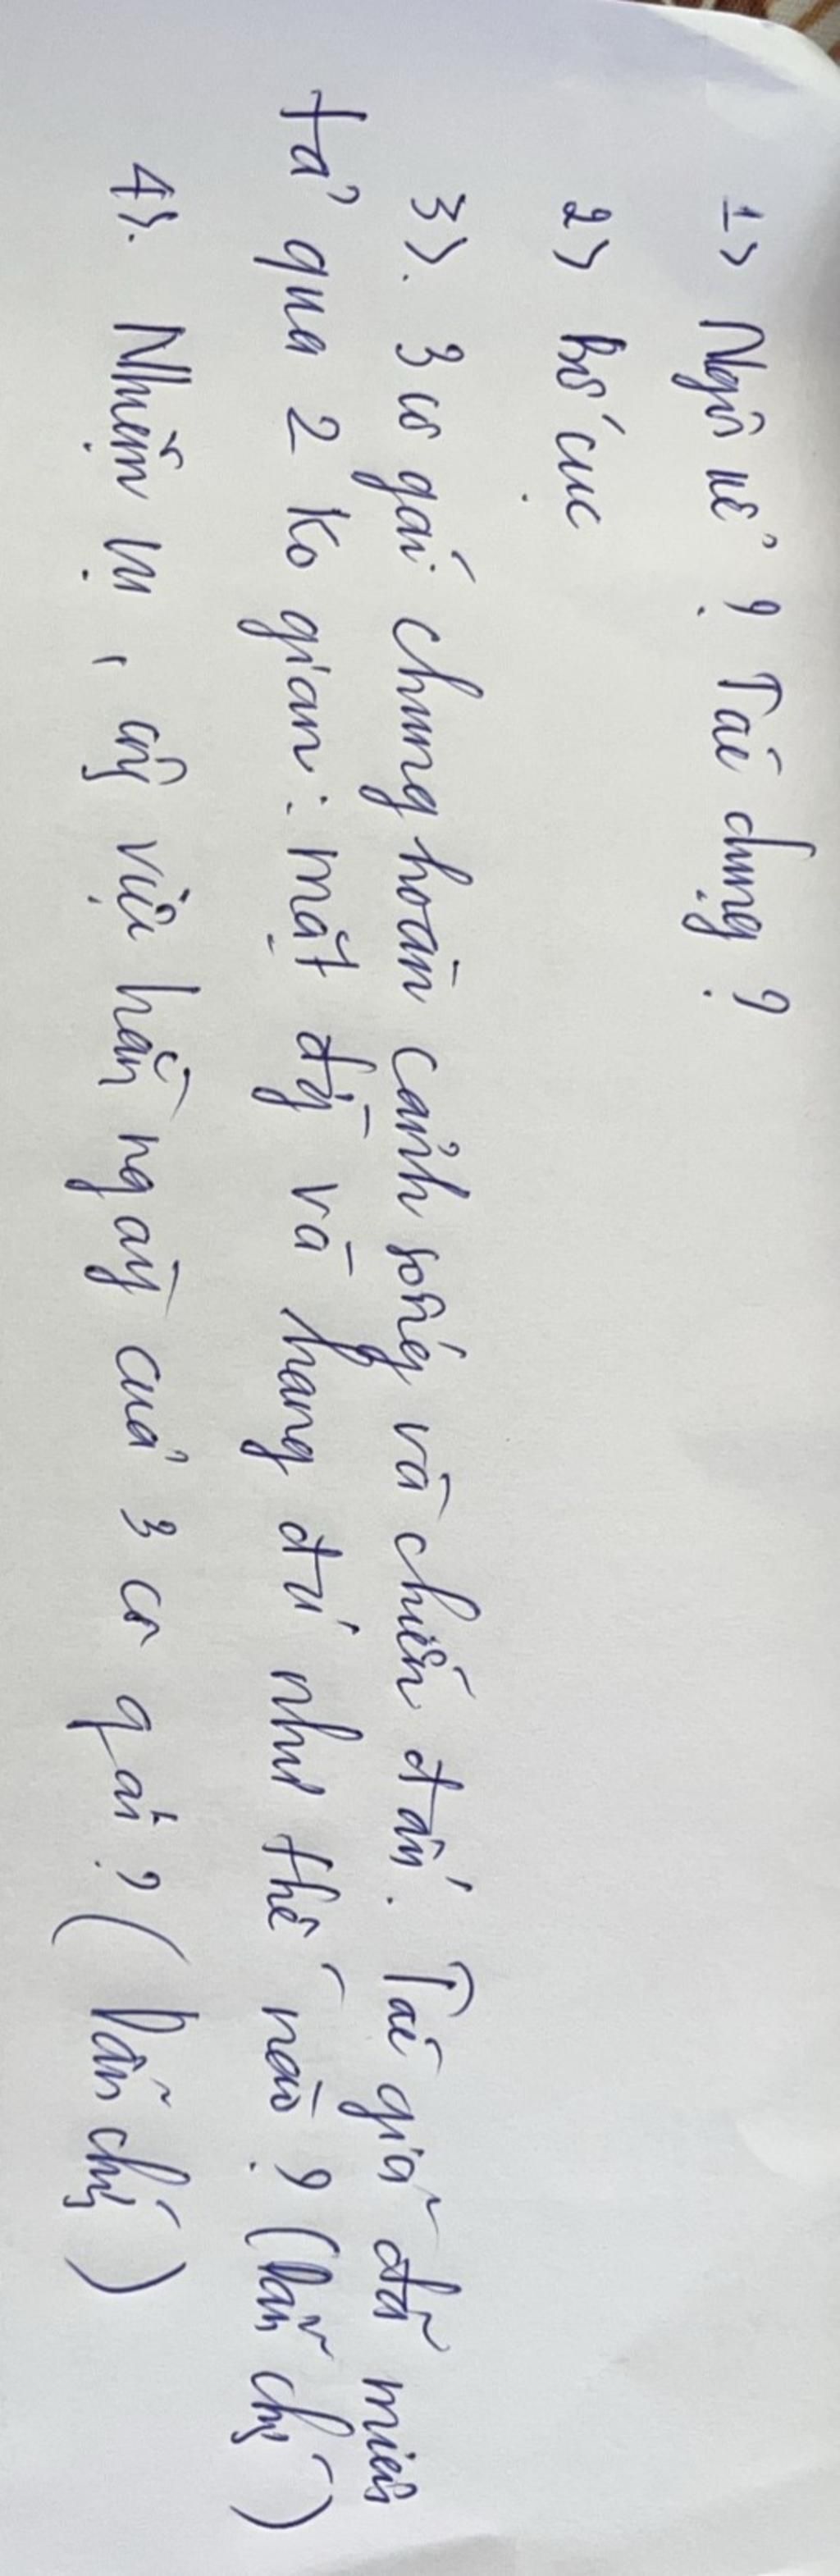 1> Ngôi kể? Tác dụng?
2> Bố cục
3>. 3 cô gái chung hoàn cảnh sống và chiến đấu. Tác giả đã miêu
tả qua 2 ko gian: mặt đg và hang đá như thế nào? (Dẫn chg)
4>. Nhiệm vụ, công việc hằng ngày của 3 cô gái? (Dẫn chg)